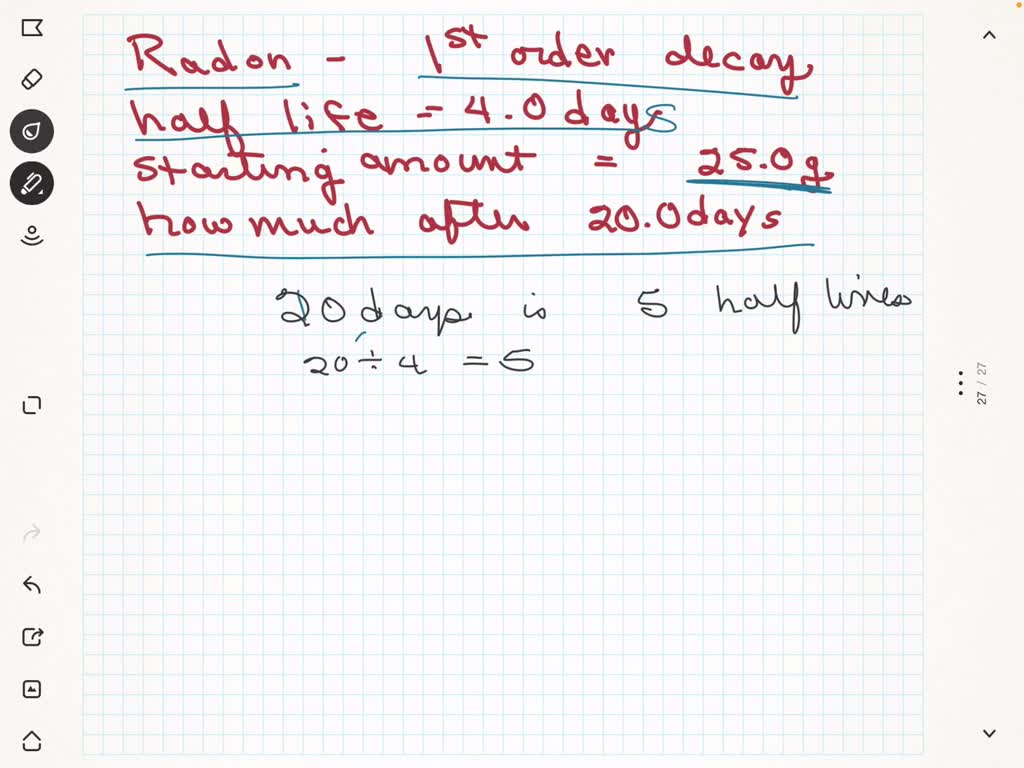 Radon - 1st order decay
half life = 4.0 days
starting amount = 25.0g
how much after 20.0 days
20 days is 5 half lives
20 ÷ 4 = 5
27 / 27